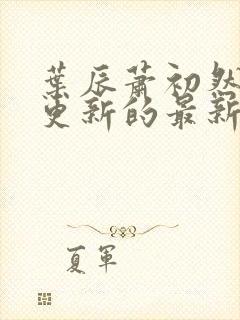 葉辰蕭初然
更新的最新
夏軍